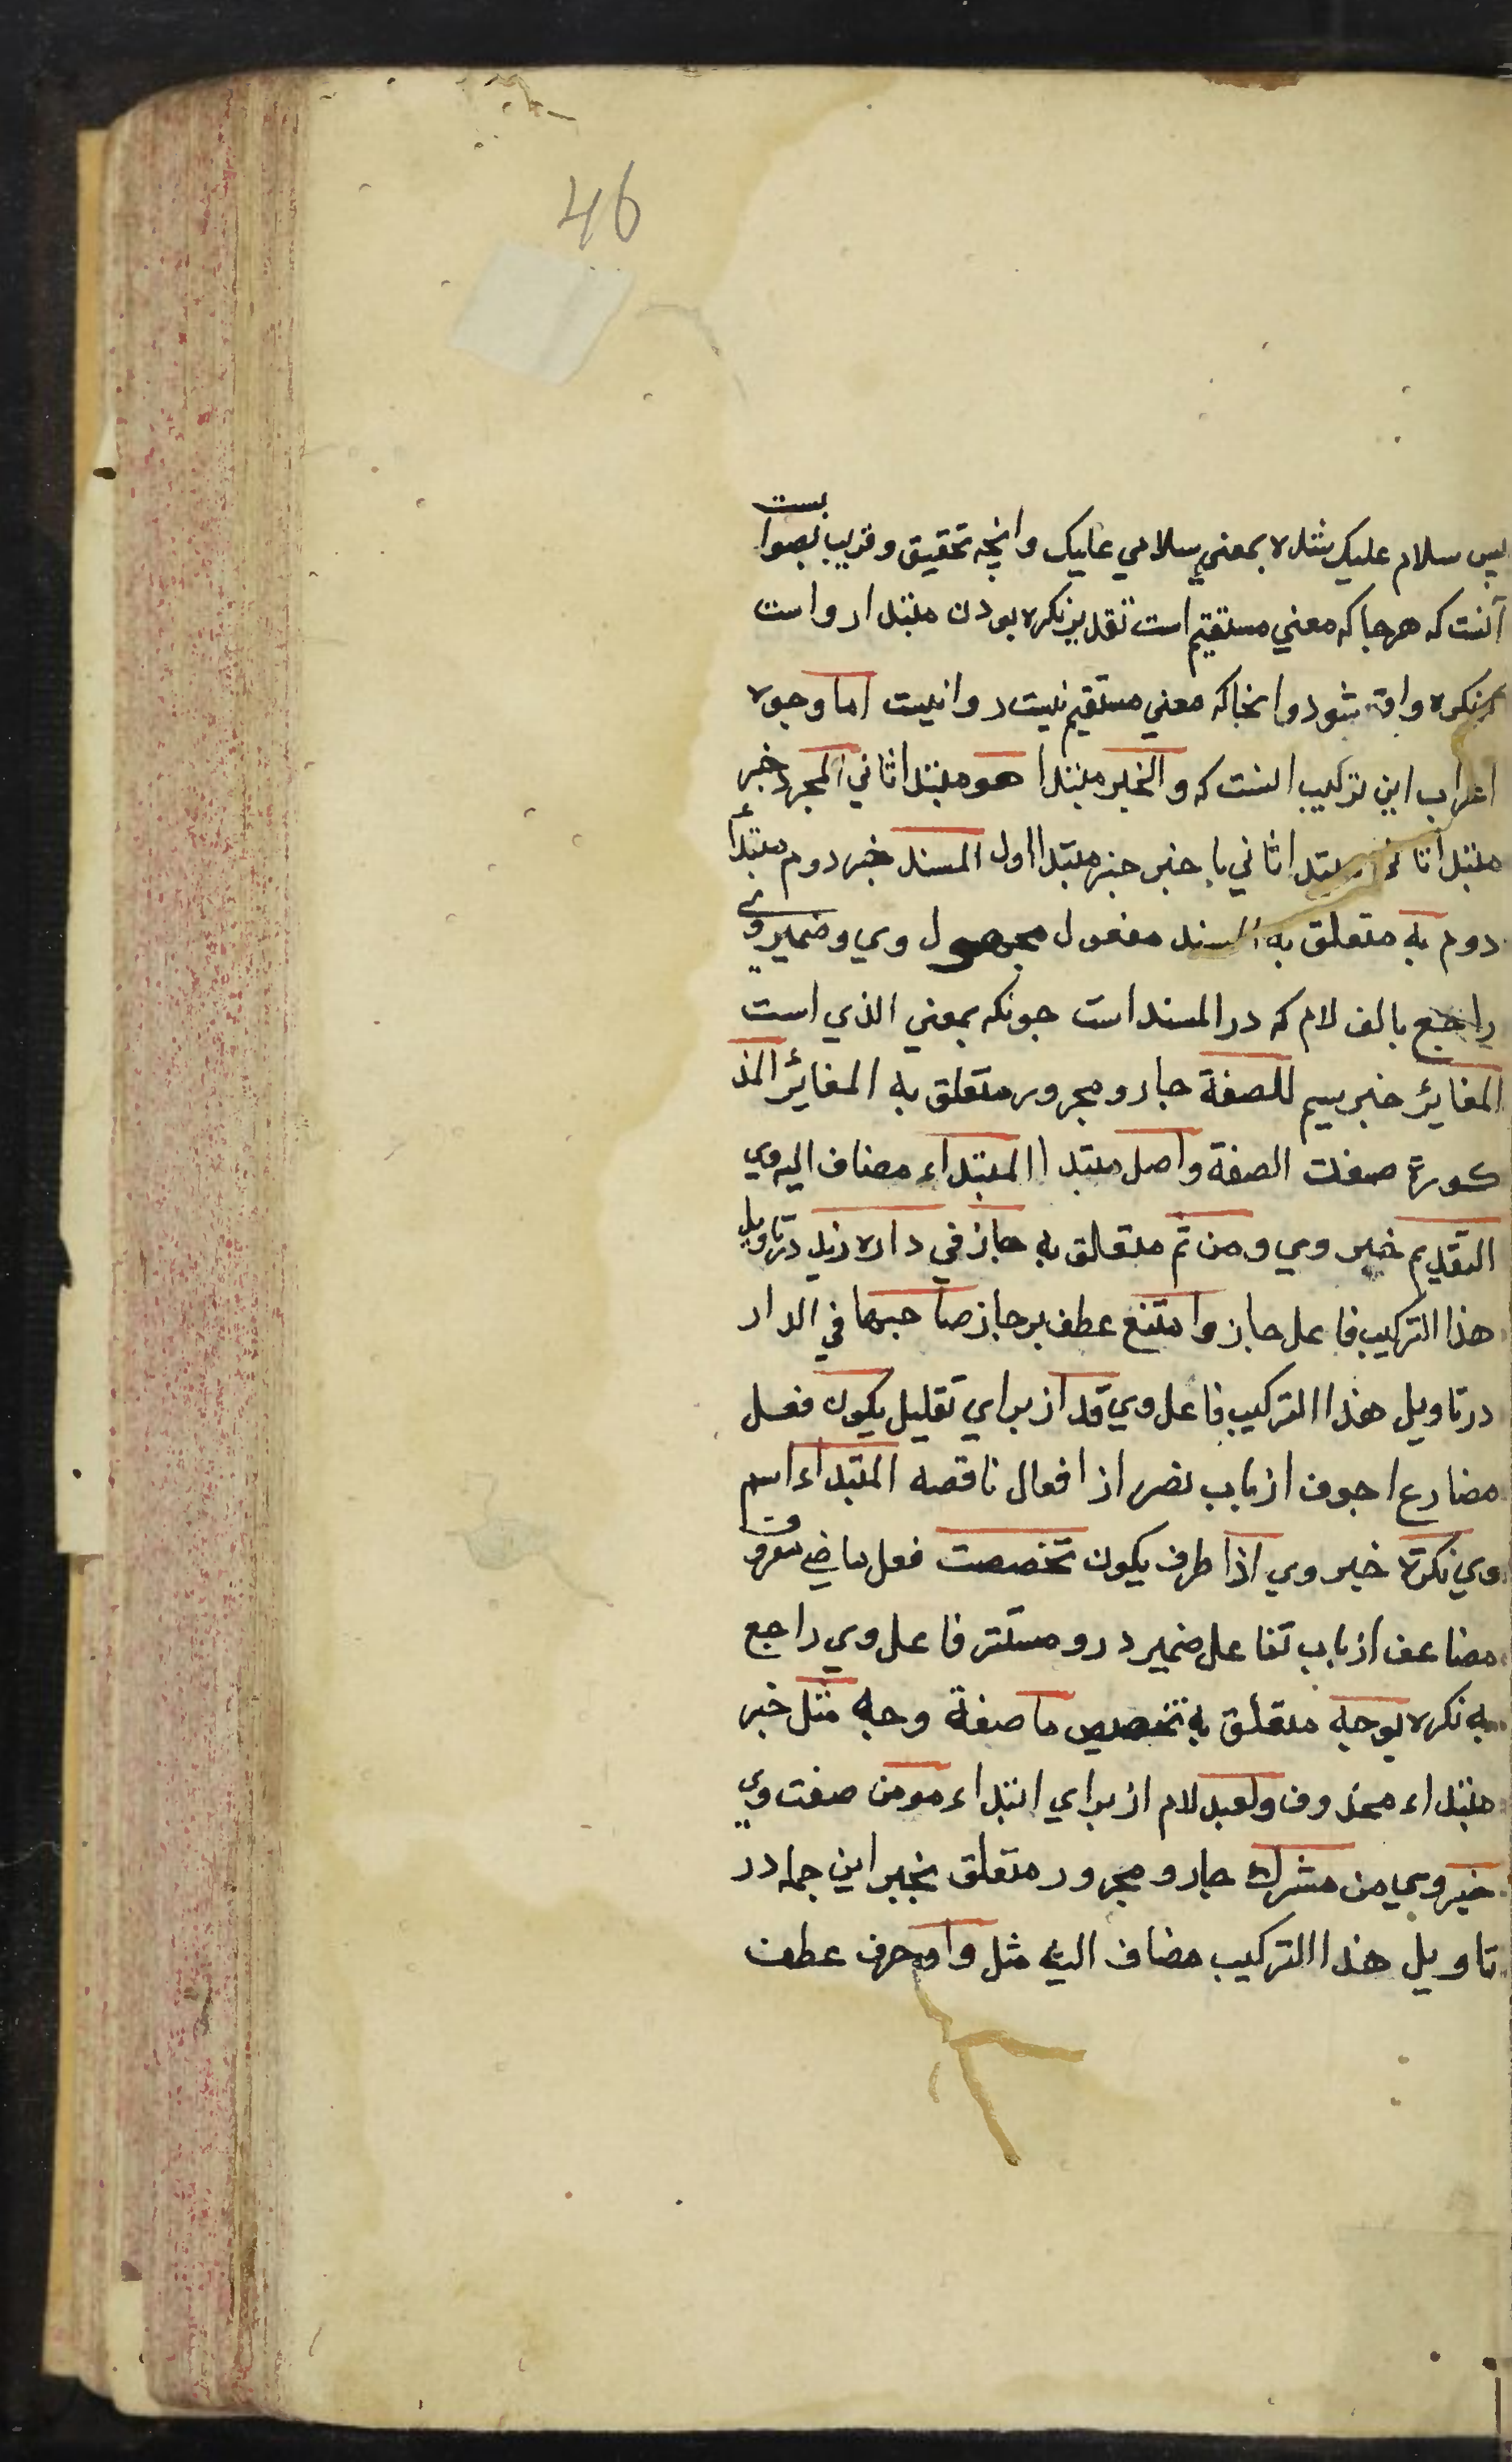 46
پس سلام عليك شده بمعني سلامي عليك وانچه تحقيق و قريب بصوا بست
آنست كه هرجا كه معني مستقيم است تقدير نكره بودن مبتدا رواست
كه نكره واقع شود وانجا كه معني مستقيم نيست روا نيست اما وجوه
اعراب اين تركيب انست كه والخبر مبتدا هو مبتدا ثاني المجرد خبر
مبتدا ثاني مبتدا ثاني با خبر خبر مبتدا اول المسند خبر دوم مبتدأ
دوم به متعلق به المسند مفعول مجهول وي و ضمير وي
راجع بالف لام كه در المسند است جونكه بمعني الذي است
المغاير خبر سيم للصفة جار و مجرور متعلق به المغاير المذ
كورة صفت الصفة واصل مبتدا المبتداء مضاف اليه وي
التقديم خبر وي ومن ثم متعلق به جاز في داره زيد در تاويل
هذا التركيب فاعل جاز وامتنع عطف بر جاز صاحبها في الدار
در تاويل هذا التركيب فاعل وي قد از براي تقليل يكون فعل
مضارع اجوف از باب نصر از افعال ناقصه المبتداء اسم
وي نكرة خبر وي اذا ظرف يكون تخصصت فعل ماضي معروف
مضاعف از باب تفاعل ضمير درو مستتر فاعل وي راجع
به نكره بوجه متعلق به تخصيص ما صفة وجه مثل خبر
مبتداء محذوف ولعبد لام از براي ابتداء مومن صفت وي
خير وي من مشرك جار و مجرور متعلق بخير اين جمله در
تاويل هذا التركيب مضاف اليه مثل واو حرف عطف